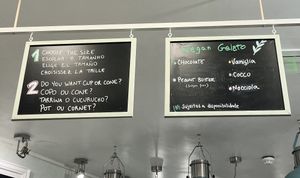 1 CHOOSE THE SIZE
ESCOLHA O TAMANHO
ELIGE EL TAMAÑO
CHOISISSEZ LA TAILLE
2 DO YOU WANT CUP OR CONE?
COPO OU CONE?
TARRINA O CUCURUCHO?
POT OU CORNET?
Vegan Gelato
• CHOCOLATE
• Vaniglia
• PEANUT BUTTER
• Cocco
• Nocciola
Sujeitos a disponibilidade